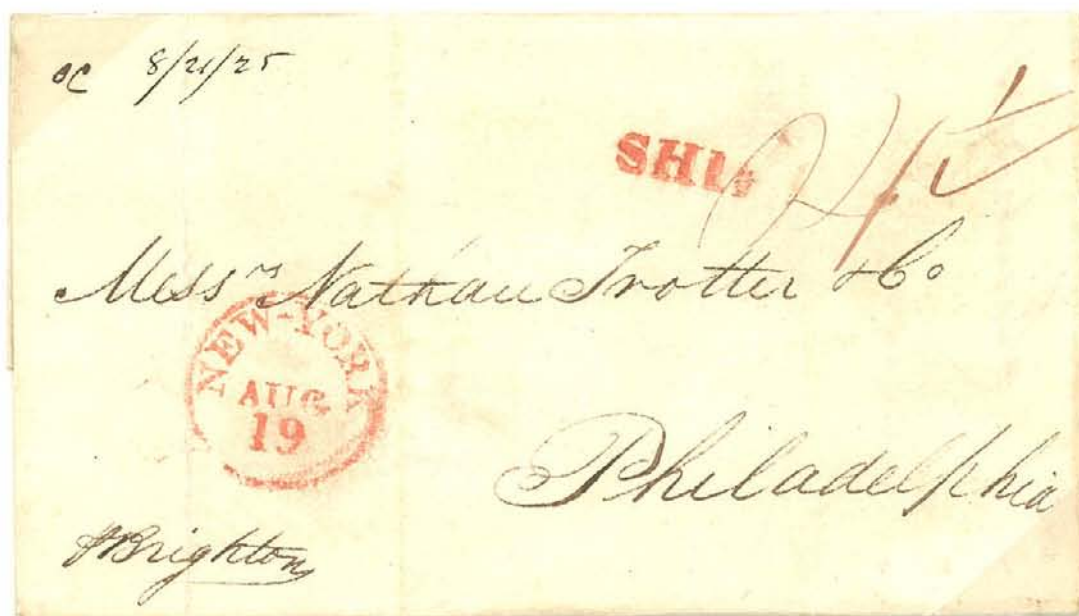 8/21/25
SHI
Messrs Nathan Trotter & Co
NEW-YORK
AUG
19
Philadelphia
Brighton